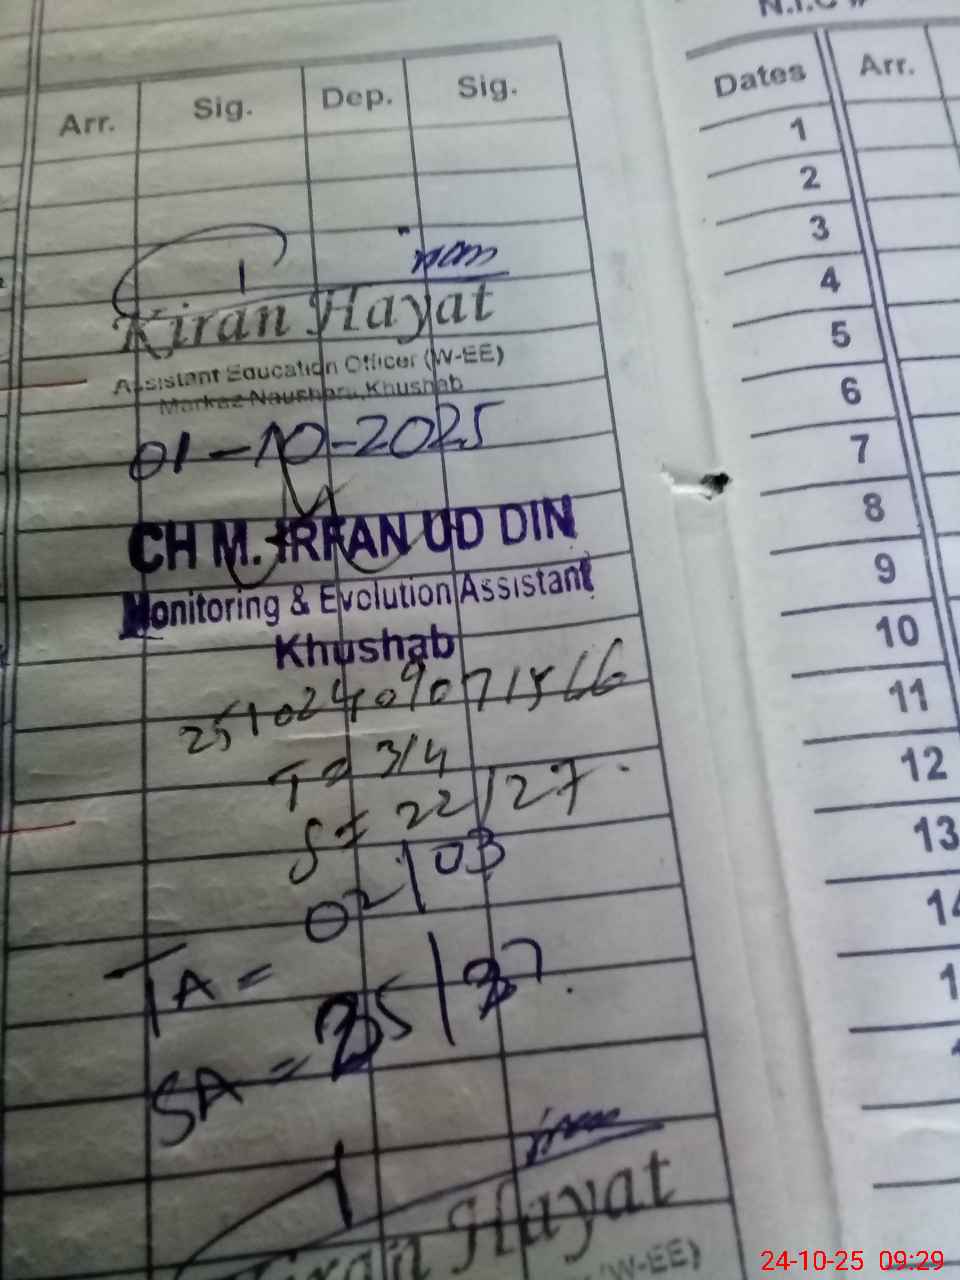 N.I.C #
Arr. Sig. Dep. Sig.
Dates Arr.
1
2
3
4
5
6
7
8
9
10
11
12
13
14
1
Kiran Hayat
Assistant Education Officer (W-EE)
Markaz Naushera, Khushab
01-10-2025
CH M. IRFAN UD DIN
Monitoring & Evolution Assistant
Khushab
T = 3/4
S = 22/27
02/03
TA =
SA =
Kiran Hayat
(W-EE)
24-10-25 09:29